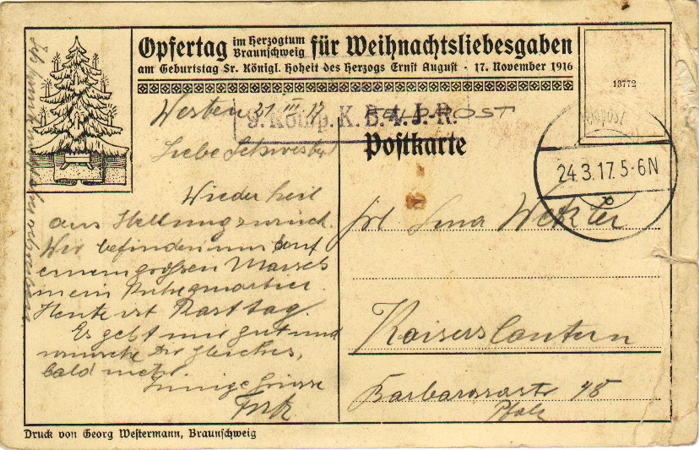 Opfertag im Herzogtum Braunschweig für Weihnachtsliebesgaben
am Geburtstag Sr. Königl. Hoheit des Herzogs Ernst August · 17. November 1916
13772
Westen 21 III 17
FELDPOST
9. Komp. K. B. 4. J.-R.
Postkarte
24.3.17.5-6N
Liebe Schwester
Wieder heil
aus Stellung zurück.
Wir befinden uns auf
einem großen Marsch
in ein Ruhequartier.
Heute ist Rasttag.
Es geht mir gut und
wünsche Dir gleiches,
bald mehr.
Innige Grüsse
Frl.
Kaiserslautern
Barbarossastr 48
Pfalz
Druck von Georg Westermann, Braunschweig